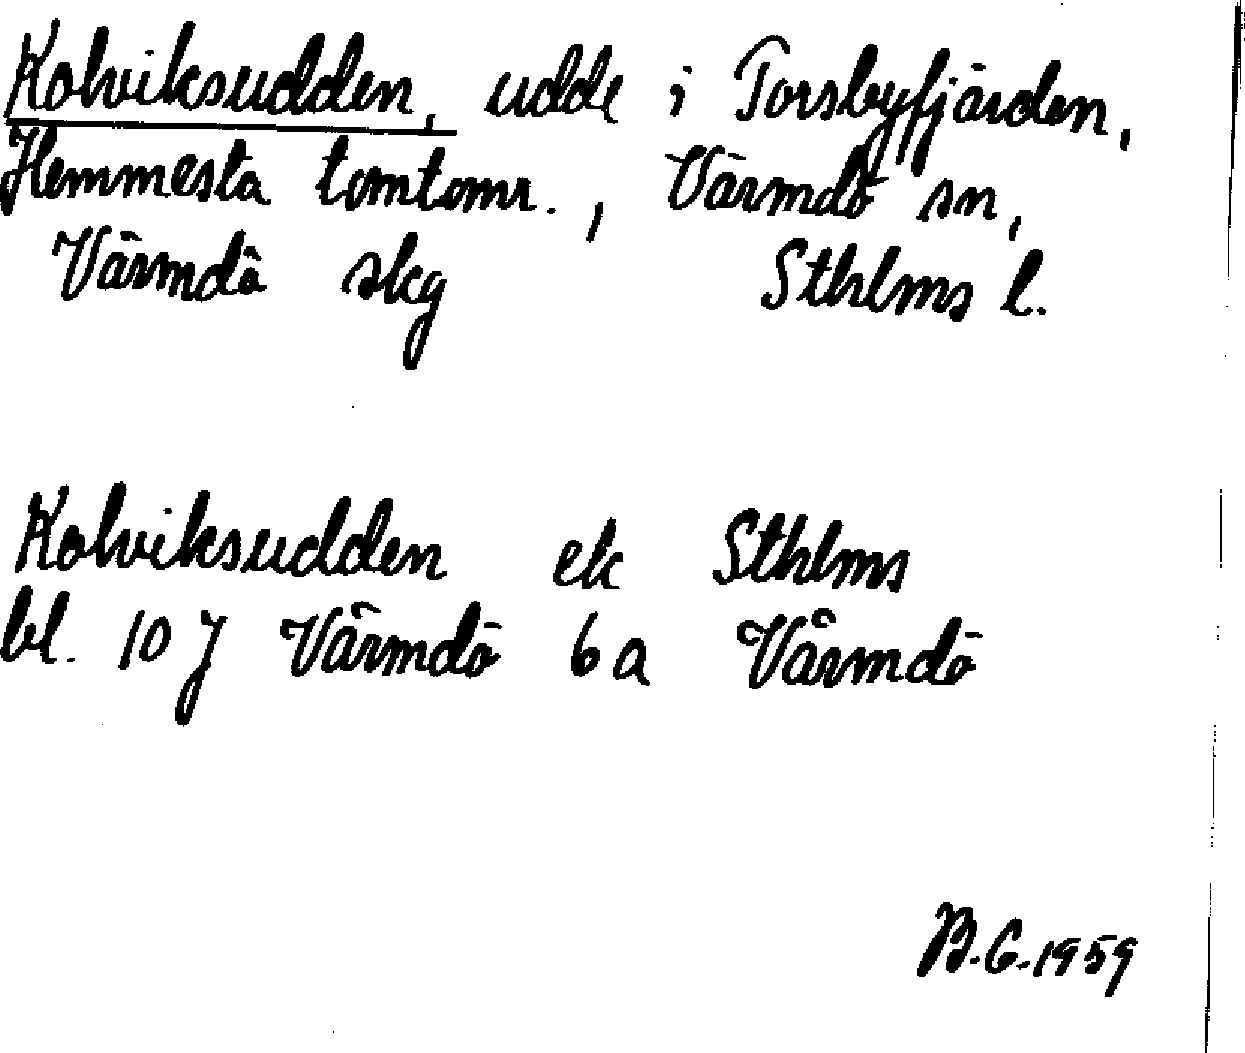 Kolviksudden, udde i Torsbyfjärden,
Hemmesta tomtomr., Värmdö sn,
Värmdö skg Sthlms l.
Kolviksudden ek Sthlms
bl. 10 J Värmdö 6 a Värmdö
B.G. 1959